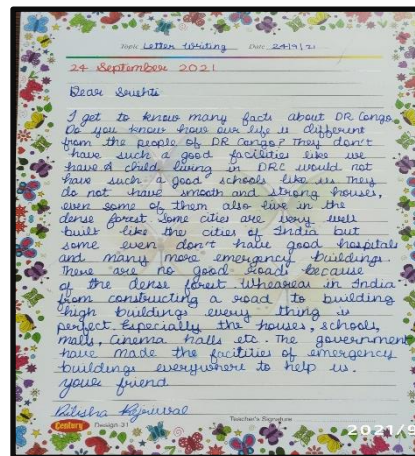 Topic Letter Writing Date 24/9/21
24 September 2021
Dear Srushti
I get to know many facts about DR Congo.
Do you know how our life is different
from the people of DR Congo? They don't
have such a good facilities like we
have. A child living in DRC would not
have such a good schools like us they
do not have smooth and strong houses,
even some of them also live in the
dense forest. Some cities are very well
built like the cities of India but
some even don't have good hospitals
and many more emergency buildings.
There are no good roads because
of the dense forest. Wheareas in India
from constructing a road to building
high buildings every thing is
perfect. Especially the houses, schools,
malls, Cinema halls etc. The government
have made the facilities of emergency
buildings everywhere to help us.
your friend
Teacher's Signature
Century Design 21
2021/9